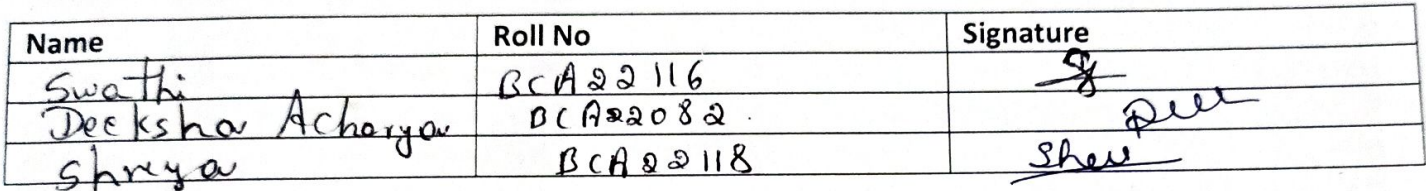 Name Roll No Signature
Swathi BCA22116
Deeksha Acharya BCA22082.
Shreya BCA22118